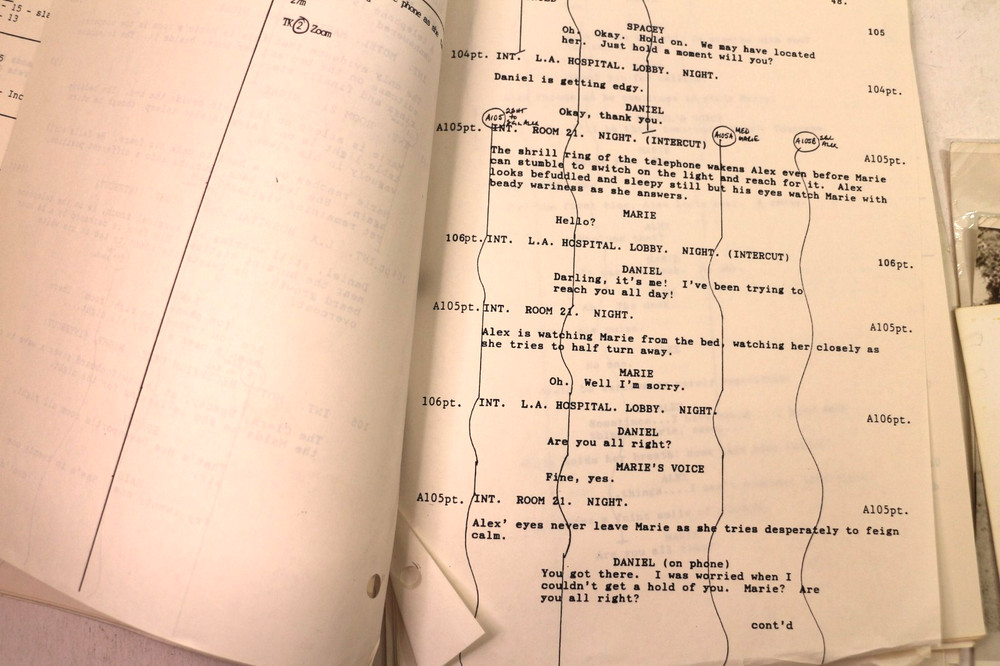 - 15 - sla
- 13
- Inc
27m
phone as she
TK 2 Zoom
48.
SPACEY
105
Oh. Okay. Hold on. We may have located
her. Just hold a moment will you?
104pt. INT. L.A. HOSPITAL. LOBBY. NIGHT.
104pt.
Daniel is getting edgy.
DANIEL
Okay, thank you.
A105
A105A MED
MARIE
A105B
ALEX
A105pt. INT. ROOM 21. NIGHT. (INTERCUT)
A105pt.
The shrill ring of the telephone wakens Alex even before Marie
can stumble to switch on the light and reach for it. Alex
looks befuddled and sleepy still but his eyes watch Marie with
beady wariness as she answers.
MARIE
Hello?
106pt. INT. L.A. HOSPITAL. LOBBY. NIGHT. (INTERCUT)
106pt.
DANIEL
Darling, it's me! I've been trying to
reach you all day!
A105pt. INT. ROOM 21. NIGHT.
A105pt.
Alex is watching Marie from the bed, watching her closely as
she tries to half turn away.
MARIE
Oh. Well I'm sorry.
106pt. INT. L.A. HOSPITAL. LOBBY. NIGHT.
A106pt.
DANIEL
Are you all right?
MARIE'S VOICE
Fine, yes.
A105pt. INT. ROOM 21. NIGHT.
A105pt.
Alex' eyes never leave Marie as she tries desperately to feign
calm.
DANIEL (on phone)
You got there. I was worried when I
couldn't get a hold of you. Marie? Are
you all right?
cont'd